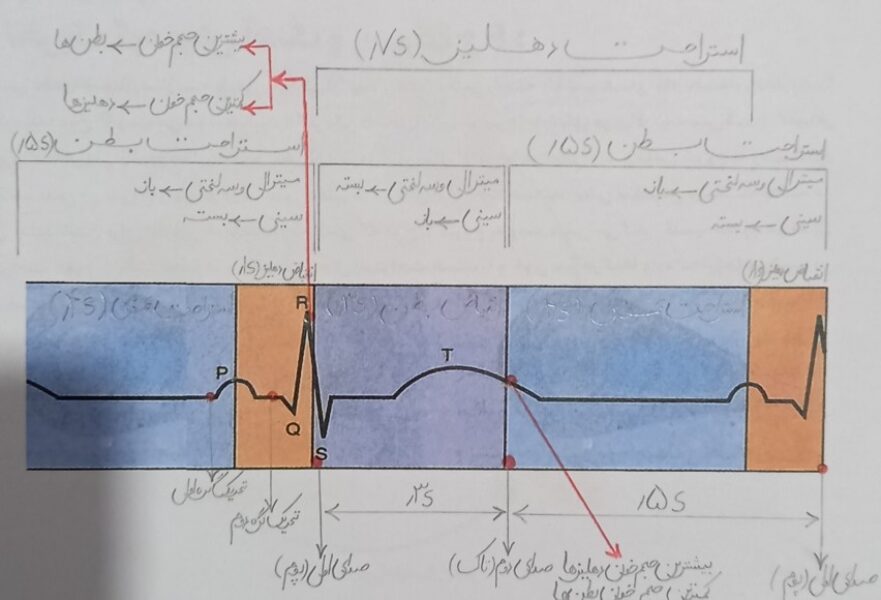 بیشترین حجم خون ← بطن ها
کمترین حجم خون ← دهلیزها
استراحت دهلیز (۰/۷s)
استراحت بطن (۰/۵s)
میترال و سه لختی ← باز
سینی ← بسته
میترال و سه لختی ← بسته
سینی ← باز
استراحت بطن (۰/۵s)
میترال و سه لختی ← باز
سینی ← بسته
انقباض دهلیز (۰/۱s)
انقباض دهلیز
استراحت عمومی (۰/۴s)
انقباض بطن (۰/۳s)
استراحت عمومی
R
P
Q
S
T
تحریک گره اول
تحریک گره دوم
۰/۳s
۰/۵s
صدای اول (پوم)
صدای دوم (تاک)
بیشترین حجم خون دهلیزها
کمترین حجم خون بطن ها
صدای اول (پوم)